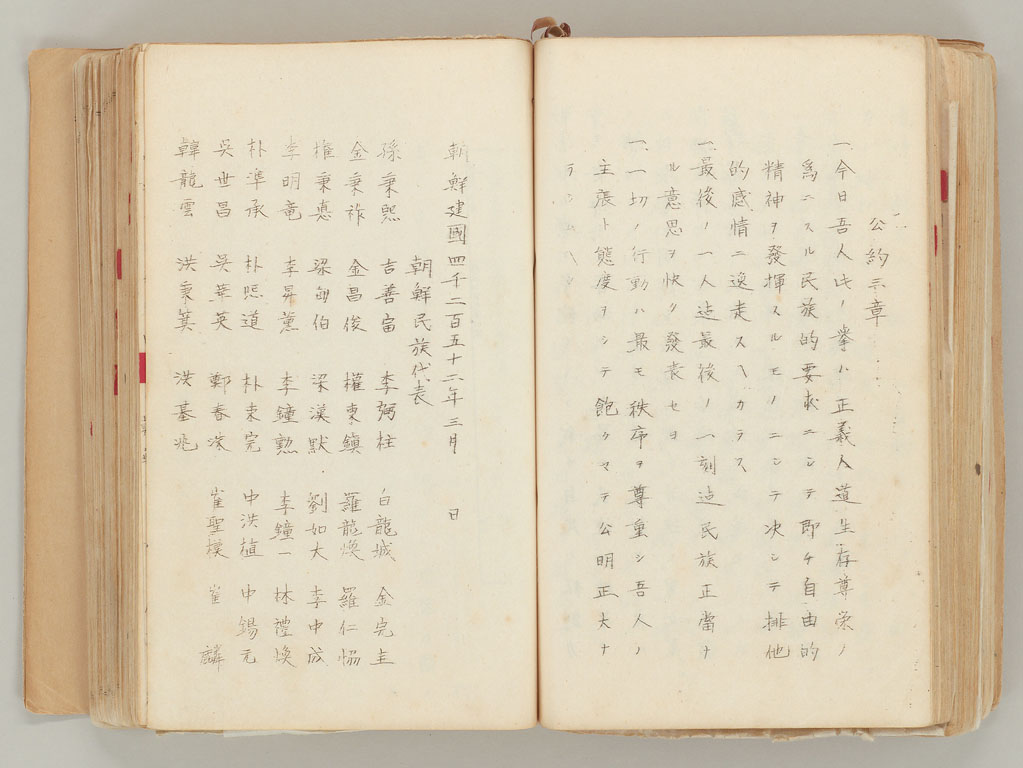 公約三章
一、今日吾人此ノ擧ハ正義人道生存尊榮ノ
爲ニスル民族的要求ニシテ即チ自由的
精神ヲ發揮スルモノニシテ決シテ排他
的感情ニ逸走スヘカラス
一、最後ノ一人迠最後ノ一刻迠民族正當ナ
ル意思ヲ快ク發表セヨ
一、一切ノ行動ハ最モ秩序ヲ尊重シ吾人ノ
主張ト態度ヲシテ飽クマテ公明正大ナ
ラシムヘシ
朝鮮建國四千二百五十二年三月 日
朝鮮民族代表
孫秉熙 吉善宙 李弼柱 白龍城 金完圭
金秉祚 金昌俊 權東鎭 羅龍煥 羅仁協
權秉悳 梁甸伯 梁漢默 劉如大 李中成
李明竜 李昇薫 李鐘勲 李鐘一 林禮煥
朴準承 朴熙道 朴東完 申洪植 申錫元
吳世昌 吳華英 鄭春洙 崔聖模 崔麟
韓龍雲 洪秉箕 洪基兆